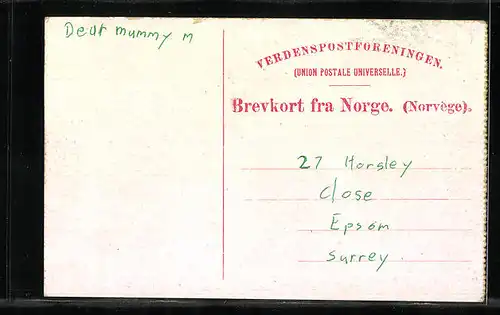 Dear mummy m
VERDENSPOSTFORENINGEN.
(UNION POSTALE UNIVERSELLE.)
Brevkort fra Norge. (Norvège).
27 Horsley
Close
Epsom
Surrey